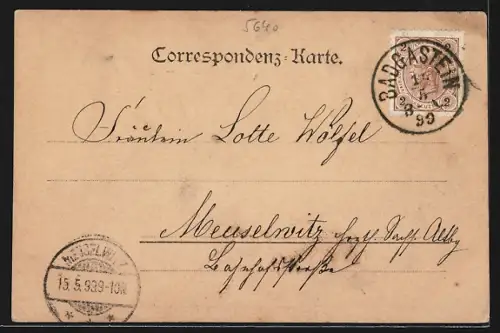 5640
Correspondenz-Karte.
BADGASTEIN
99
Fräulein Lotte Wölfel
Meuselwitz Herzgt. Sachs. Altbg
Bahnhofstraße
MEUSELWITZ
15.5.99 9-10N.
2
2